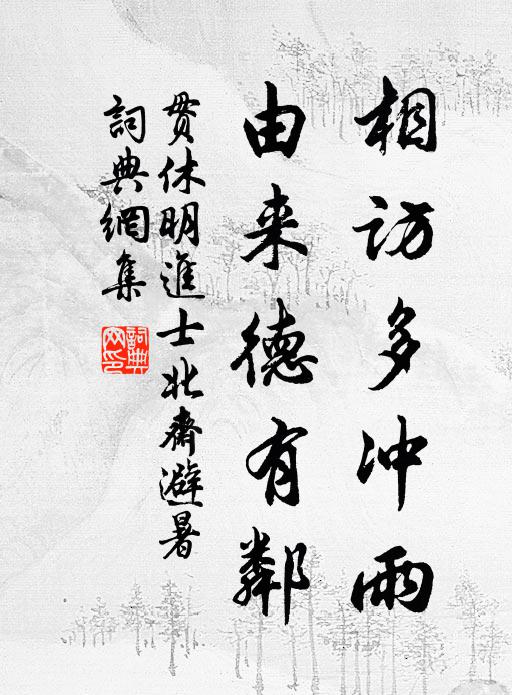 相访多冲雨
由来德有鄰
贯休明進士北齋避暑
詞典網集
詞典
网